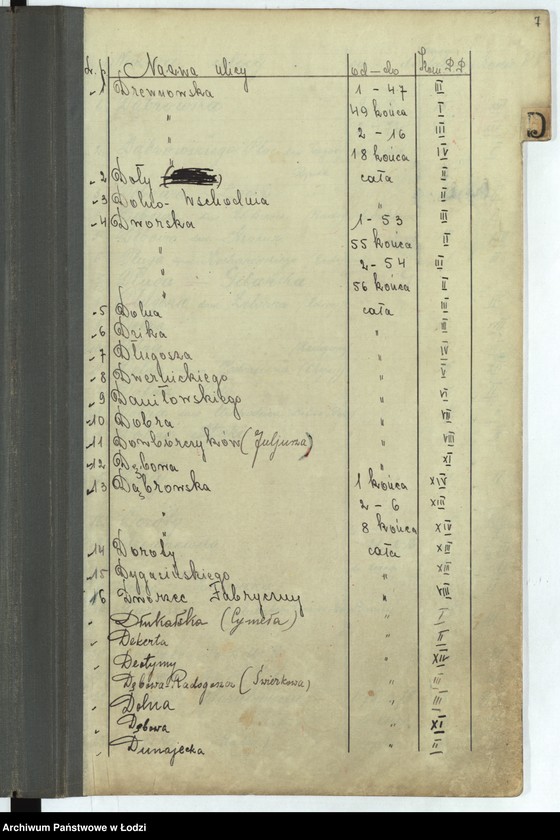 7
L. p. Nazwa ulicy od-do Kom P.P
D
1 Drewnowska 1 - 47 III
" 49 końca I
" 2 - 16 III
" 18 końca IV
2 Doły cała II
3 Dolno-Wschodnia "
4 Dworska 1 - 53 III
" 55 końca II
" 2 - 54 III
" 56 końca II
5 Dolna cała III
6 Dzika " III
7 Długosza " IV
8 Dwernickiego " V
9 Daniłowskiego " VI
10 Dobra " VII
11 Dowbórczyków (Juljusza) " VIII
12 Dębowa " XI
13 Dąbrowska 1 końca XIV
2 - 6 XIII
" 8 końca XIV
14 Doroty cała XIII
15 Dygasińskiego " XIII
16 Dworzec Fabryczny " VIII
(Cymera) " I
Dekerta " II
" XIV
Dębowa-Radogoszcz (Świerkowa) " III
Dolna " III
Dębowa " XI
Dunajecka " II
Archiwum Państwowe w Łodzi